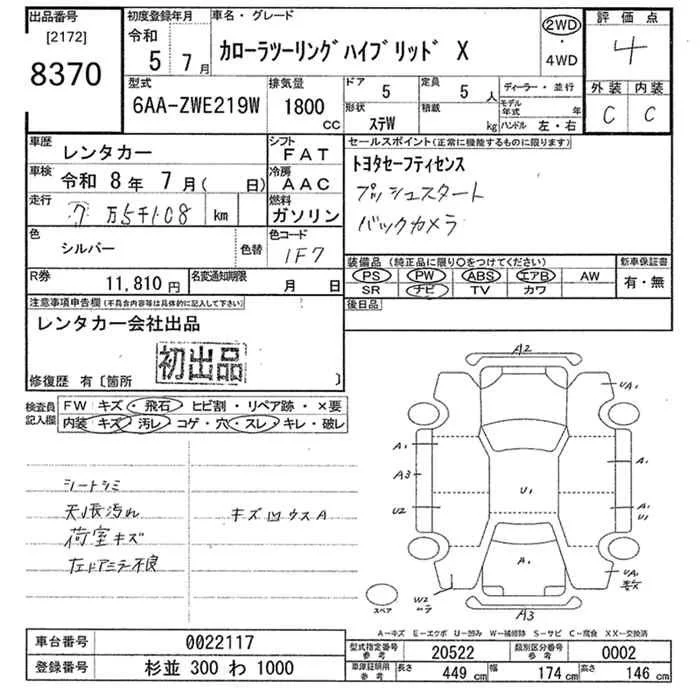 出品番号 [2172] 8370
初度登録年月 令和 5年 7月
車名・グレード カローラツーリングハイブリッド X
2WD・4WD
評価点 4
外装 C 内装 C
型式 6AA-ZWE219W
排気量 1800 cc
ドア 5
形状 ステW
定員 5 人
積載 kg
ディーラー・並行
モデル年式 年
ハンドル 左・右
車歴 レンタカー
シフト FAT
車検 令和 8年 7月( 日)
冷房 AAC
走行 7万5千108 km
燃料 ガソリン
色 シルバー 色替
色コード 1F7
R券 11,810円
名変通知期限 月 日
セールスポイント(正常に機能するものに限ります)
トヨタセーフティセンス
プッシュスタート
バックカメラ
装備品(純正品に限り○をつけてください)
PS PW ABS エアB AW
SR ナビ TV カワ
新車保証書 有・無
後日品
注意事項申告欄(不具合内容等は具体的に記入して下さい)
レンタカー会社出品
初出品
修復歴 有〔箇所 〕
検査員記入欄
FW キズ・飛石・ヒビ割・リペア跡・×要
内装 キズ・汚レ・コゲ・穴・スレ・キレ・破レ
シートシミ
天張汚れ
荷室キズ
左ドアミラー不良
キズ凹ウスA
A2
UA1
A1
A3
U2
A1
A1
U1
U1
A1
UA1
数
W2
A3
スペア
A-キズ E-エクボ U-凹み W-補修跡 S-サビ C-腐食 XX-交換済
車台番号 0022117
登録番号 杉並 300 わ 1000
型式指定番号 参考 20522
類別区分番号 参考 0002
車庫証明用 参考 長さ 449 cm 幅 174 cm 高さ 146 cm